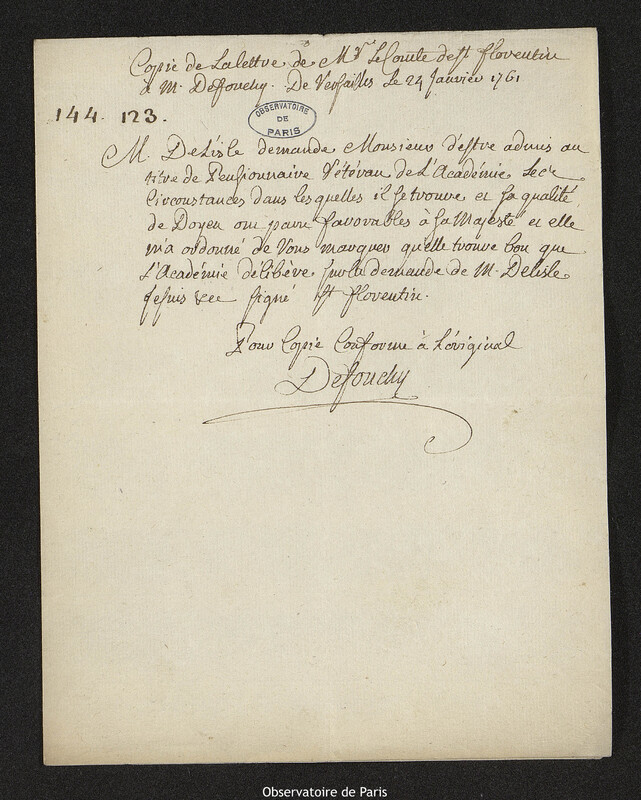 Copie de La lettre de Mr. Le Comte de st florentin
à M. Deffouchy. De Versailles Le 24 Janvier 1761
144. 123.
OBSERVATOIRE
DE
PARIS
M. De L'isle demande Monsieur d'estre admis au
titre de Pensionnaire Vétéran de L'Académie,
Circonstances dans les quelles il se trouve et sa qualité
de Doyen ont paru favorables à sa Majesté et elle
m'a ordonné de Vous marquer qu'elle trouve bon que
L'Académie délibère sur la demande de M. Delisle
je suis &ce signé st florentin.
Pour Copie Conforme à L'original
Defouchy
Observatoire de Paris